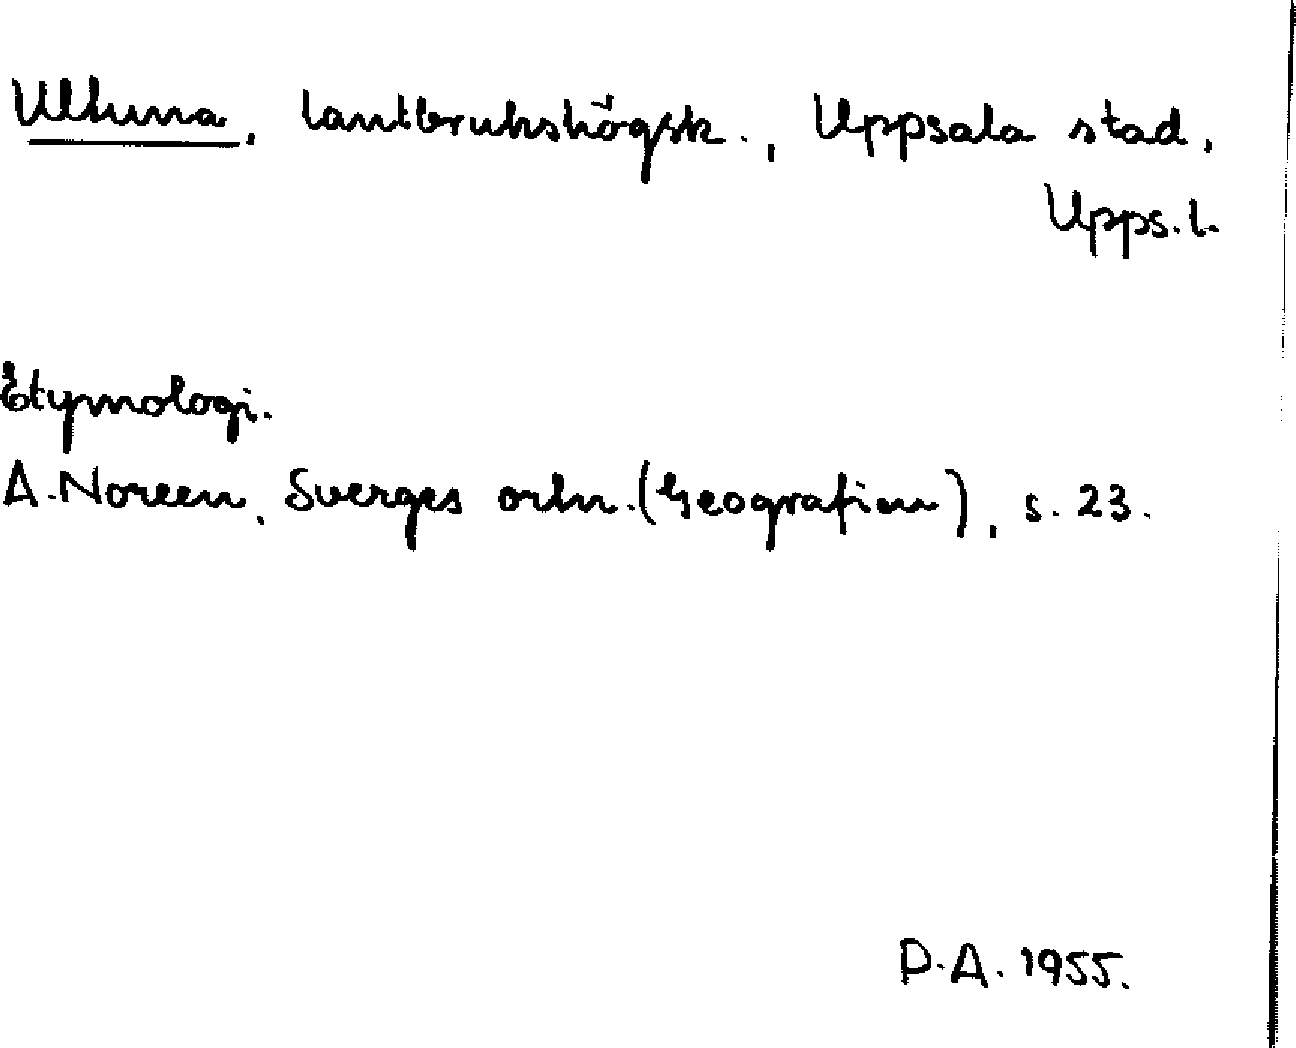 Ultuna, lantbrukshögsk., Uppsala stad,
Upps. l.
Etymologi.
A. Noreen, Sverges ortn. (Geografien), s. 23.
D.A. 1955.